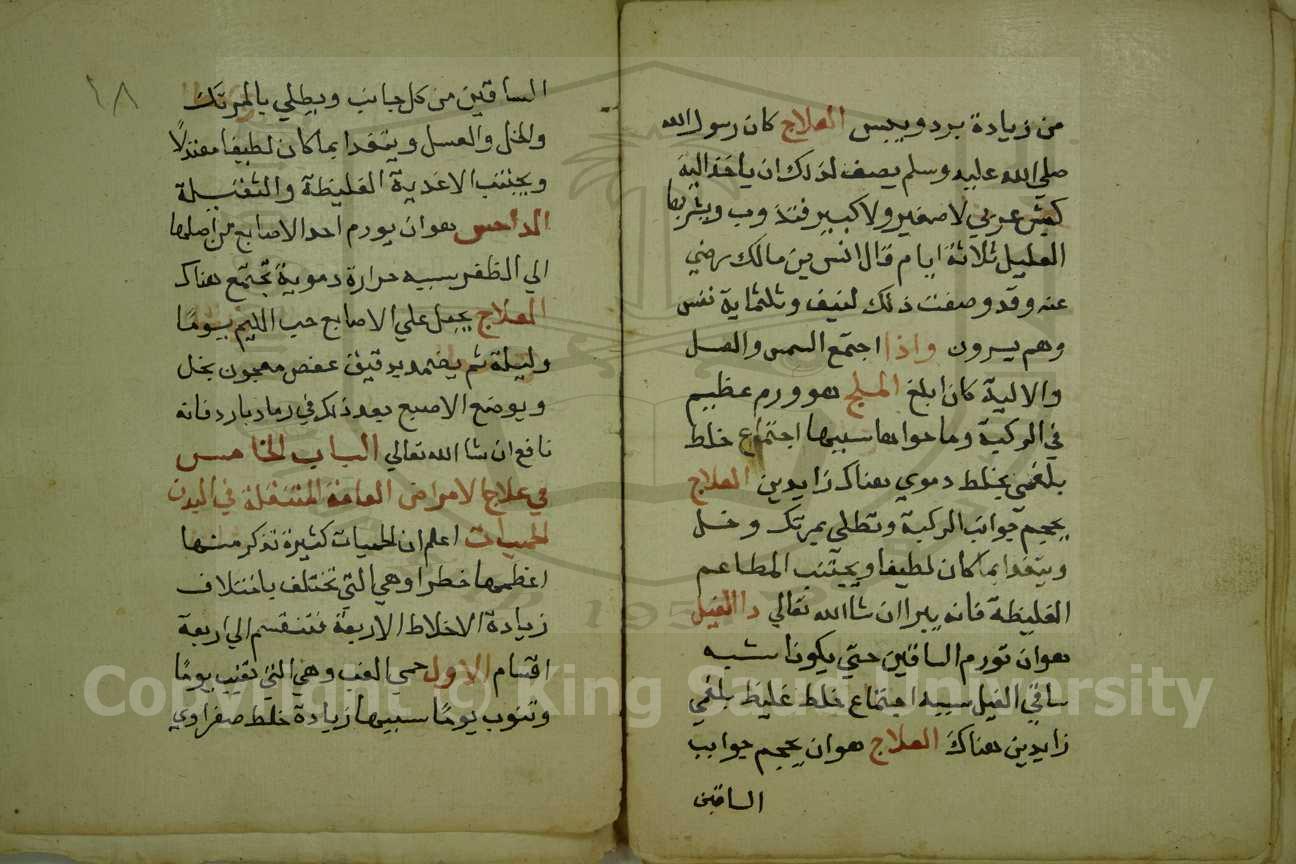 من زيادة برد ويبس العلاج كان رسول الله
صلى الله عليه وسلم يصف لذلك ان ياخذ الية
كبش عربي لا صغير ولا كبير فتذوب ويشربها
العليل ثلاثة ايام قال انس بن مالك رضي
عنه وقد وصفت ذلك لنيف وثلثماية نفس
وهم يبرون واذا اجتمع السمن والعسل
والالية كان ابلغ الملح هو ورم عظيم
في الركبة وما حواها سببها اجتماع خلط
بلغمي بخلط دموي هناك زايدين العلاج
يحجم جوانب الركبة وتطلي بمرتك وخل
ويتغدا بما كان لطيفا ويجتنب المطاعم
الغليظة فانه يبرا ان شا الله تعالي دا الفيل
هو ان تورم الساقين حتي يكونا شبه
ساقي الفيل سببه اجتماع خلط غليظ بلغمي
زايدين هناك العلاج هو ان يحجم جوانب
الساقين
١٨
الساقين من كل جانب ويطلي بالمرتك
والخل والعسل ويتغدا بما كان لطيفا معتدلا
ويجتنب الاغدية الغليظة والثقيلة
الداحس هو ان يورم احد الاصابع من اصلها
الي الظفر سببه حرارة دموية تجتمع هناك
العلاج يجعل علي الاصابع حب الليم يوما
وليلة ثم يضمد بدقيق عفص معجون بخل
ويوضع الاصبع بعد ذلك في رماد بارد فانه
نافع ان شا الله تعالي الباب الخامس
في علاج الامراض العامة المتنقلة في البدن
الحميات اعلم ان الحميات كثيرة نذكر منها
اعظمها خطرا وهي التي تختلف باختلاف
زيادة الاخلاط الاربعة فتنقسم الي اربعة
اقسام الاول حمي الغب وهي التي تغيب يوما
وتنوب يوما سببها زيادة خلط صفراوي
Copyright © King Saud University
195